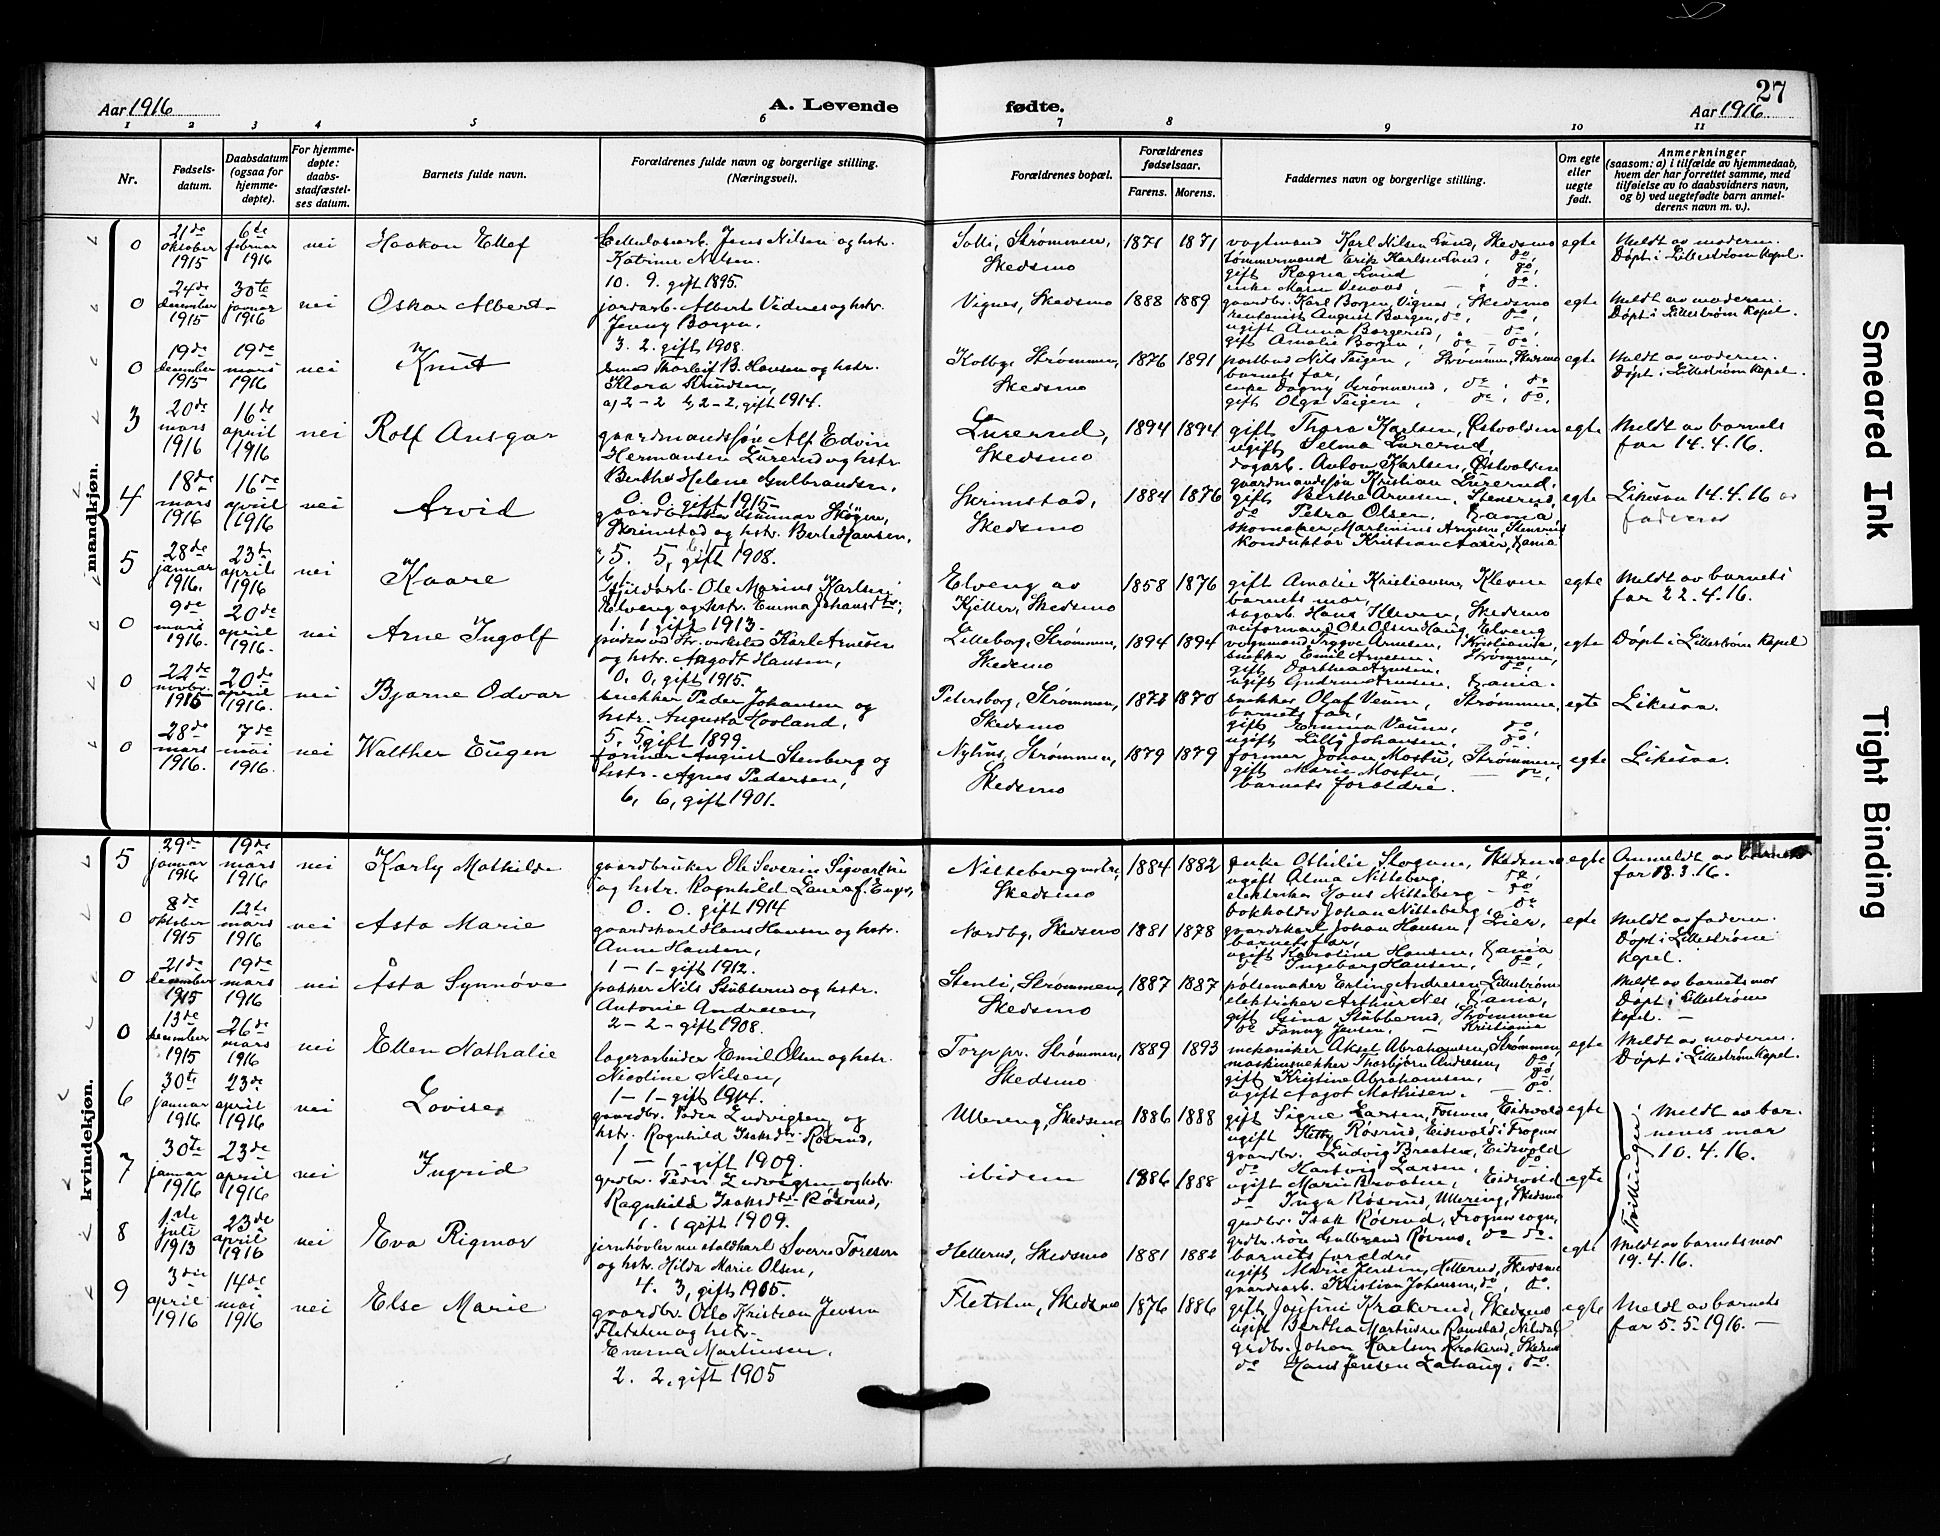 27
Aar 1916
A. Levende
fødte.
Aar 1916
1 2 3 4 5 6 7 8 9 10 11
Nr.
Fødsels-
datum.
Daabsdatum
(ogsaa for
hjemme-
døpte).
For hjemme-
døpte:
daabs-
stadfæstel-
ses datum.
Barnets fulde navn.
Forældrenes fulde navn og borgerlige stilling.
(Næringsvei).
Forældrenes bopæl.
Forældrenes
fødselsaar.
Farens. Morens.
Faddernes navn og borgerlige stilling.
Om egte
eller
uegte
født.
Anmerkninger
(saasom: a) i tilfælde av hjemmedaab,
hvem der har forrettet samme, med
tilføielse av to daabsvidners navn,
og b) ved uegtefødte barn anmel-
derens navn m. v.).
mandkjøn.
0
21de
oktober
1915
6te
februar
1916
nei
Haakon Ellef
Cellulosearb. Jens Nilsen og hstr.
Katrine Nilsen.
10. 9. gift 1895.
Solli, Strømmen,
Skedsmo
1871 1871
vogtmand Karl Nilsen Lund, Skedsmo
tømmermand Erik Karlsen Lund, do,
gift Ragna Lund, do,
egte
Meldt av moderen.
Døpt i Lillestrøm kapel.
0
24de
december
1915
30te
januar
1916
nei
Oskar Albert
jordarb. Albert Vidnes og hstr.
Jenny Borgen,
3. 2. gift 1908.
Vignes, Skedsmo
1888 1889
gaardbr. Karl Borgen, Vignes, Skedsmo
rentenist August Borgen, do, do,
ugift Anna Borgerud, do,
gift Amalie Borgen, do.
egte
Meldt av moderen.
Døpt i Lillestrøm kapel.
0
19de
december
1915
19de
mars
1916
nei
Knut
smed Thorleif B. Hansen og hstr.
Klara Knudsen,
a) 2-2 b) 2-2, gift 1914.
Kolby, Strømmen,
Skedsmo
1876 1891
postbud Nils Teigen, Strømmen, Skedsmo
barnets far,
enke Dagny Grønnerud, do, do
gift Olga Teigen, do, do,
egte
Meldt av moderen.
Døpt i Lillestrøm kapel.
3
20de
mars
1916
16de
april
1916
nei
Rolf Ansgar
gaardmandssøn Alf Edvin
Hermansen Lurerud og hstr
Berthe Helene Gulbrandsen,
0. 0. gift 1915.
Lurerud,
Skedsmo
1894 1894
gift Thora Karlsen, Østvolden
ugift Selma Lurerud,
dagarb. Anton Karlsen, Østvolden
gaardmandssøn Kristian Lurerud.
egte
Meldt av barnets
far 14.4.16.
4
18de
mars
1916
16de
april
1916
nei
Arvid
Skrimstad og hstr. Berte Hansen,
5. 5, gift 1908.
Skrimstad,
Skedsmo
1884 1876
gift Berthe Arnesen, Stensrud,
do Petra Olsen, Kania,
skomaker Martinius Arnesen, Stensrud
konduktør Kristian Aaser, Kania
egte
Likesaa 14.4.16 av
faderen
5
28de
januar
1916.
23de
april
1916
nei
Kaare
Ole Marius Karlsen
Elveng og hstr. Emma Johansdtr;
1. 1 gift 1913.
Elveng av
Kjeller, Skedsmo
1858 1876
gift Amalie Kristiansen, Kleven
barnets mor,
sagarb. Hans Ilsen, Skedsmo
veiformand Ole Olsen Haug, Elveng
egte
Meldt av barnets
far 22.4.16.
0
9de
mars
1916.
20de
april
1916.
nei
Arne Ingolf
Karl Arnesen
og hstr. Aagodt Hansen,
0. 0, gift 1915.
Lilleborg, Strømmen,
Skedsmo
1894 1894
vognmand Trygve Arnesen, Kristiania,
snekker Emil Arnesen, Strømmen,
gift Dorthea Arnesen, do,
ugift Gudrun Arnesen, Kania.
egte
Døpt i Lillestrøm kapel
0
22de
novbr.
1915
20de
april
1916.
nei
Bjarne Odvar
snekker Peder Johansen og
hstr. Augusta Hovland,
5, 5 gift 1899.
Petersborg, Strømmen,
Skedsmo
1870
snekker Olaf Veum, Strømmen,
barnets far,
gift Emma Veum, do,
ugift Lilly Johansen, do.
egte
Likesaa.
0
28de
mars
1916.
7de
mai
1916.
nei
Walther Eugen
former August Stenberg og
hstr. Agnes Pedersen,
6, 6, gift 1901.
Nyhus, Strømmen,
Skedsmo
1879 1879
former Johan Mostu, Strømmen,
gift Marie Mostu, do,
barnets forældre.
egte
Likesaa.
kvindekjøn.
5
29de
januar
1916
19de
mars
1916
nei
Karly Mathilde
gaardbruker Ole Severin Sigvartsen
og hstr. Ragnhild Lauraf. Enger,
0. 0. gift 1914
Nitteberg vestre,
Skedsmo
1884 1882
enke Othilie Skogum, Skedsmo
ugift Alma Nitteberg, do,
elektriker Hans Nitteberg do
bokholder Johan Nitteberg, do
egte
Anmeldt av barnets
far 18.3.16.
0
8de
oktober
1915
12te
mars
1916
nei
Asta Marie
gaardskarl Hans Hansen og hstr.
Anne Hansen,
1-1-gift 1912.
Nordby, Skedsmo
1881 1878
gaardskarl Johan Hansen, Lier,
barnets far,
ugift Karoline Hansen, Kania
do Ingeborg Hansen, do,
egte
Meldt av faderen.
Døpt i Lillestrøm
kapel.
0
21de
december
1915
19de
mars
1916
nei
Åsta Synnöve
pakker Nils Stubberud og hstr.
Antonie Andresen,
2-2-gift 1908.
Stenli, Strømmen,
Skedsmo
1887 1887
pølsemaker Erling Andresen, Lillestrøm
elektriker Arthur Nes, Kania,
gift Gina Stubberud, Strømmen
do Fanny Jensen, Kristiania
Meldt av barnets mor
Døpt i Lillestrøm
kapel.
0
13de
december
1915
26de
mars
1916
nei
Ellen Nathalie
lagerarbeider Emil Olsen og hstr.
Nicoline Nilsen,
1-1-gift 1914.
Torp pr. Strømmen,
Skedsmo
1889 1893
mekaniker Aksel Abrahamsen, Strømmen,
maskinsnekker Thorbjørn Andresen, do,
gift Kristine Abrahamsen, do,
ugift Aagot Mathisen. do.
egte
Meldt av moderen.
Døpt i Lillestrøm kapel.
6
30te
januar
1916
23de
april
1916
nei
Lovise
gaardbr. Peder Ludvigsen og
hstr. Ragnhild Isaksdtr. Røsrud,
1-1-gift 1909.
Ullereng, Skedsmo
1886 1888
gift Signe Larsen, Eidsvold
ugift Hetty Røsrud, Eidsvold i Frogner
gaardbr. Ludvig Braaten, Eidsvold
do Hartvig Larsen, do
egte
Tvillinger
Meldt av bar-
nenes mor
10.4.16.
7
30te
januar
1916
23de
april
1916
nei
Ingrid
grdbr. Peder Ludvigsen og hstr.
Ragnhild Isaksdtr. Røsrud,
1. 1 gift 1909.
ibidem
1886 1888
ugift Marie Braaten, Eidsvold
do Inga Røsrud, Ullereng, Skedsmo
grdbr. Isak Røsrud, Frogner sogn,
grdbr. søn Gulbrand Røsrud, do do.
egte
8
1ste
juli
1913
23de
april
1916
nei
Eva Rigmor
jernhøvler nu staldkarl Sverre Toresen
og hstr. Hilda Marie Olsen,
4. 3, gift 1905.
Hellerud, Skedsmo
1881 1882
barnets forældre
ugift Marie Jensen, Hellerud, Skedsmo
gaardsarb. Kristian Johansen, do, do.
egte
Meldt av barnets mor
19.4.16.
9
3die
april
1916
14de
mai
1916
nei
Else Marie
gaardbr. Oslo Kristian Jensen
Fletsten og hstr.
Emma Martinsen,
2. 2, gift 1905
Fletsten, Skedsmo
1876 1886
gift Josefine Krakerud, Skedsmo
ugift Bertha Martinsen Ramstad, Nitedal
grdbr. Johan Karlsen Krakerud, Skedsmo
do Hans Jensen Lahaug, do.
egte
Meldt av barnets
far 5.5.1916.
Smeared Ink
Tight Binding